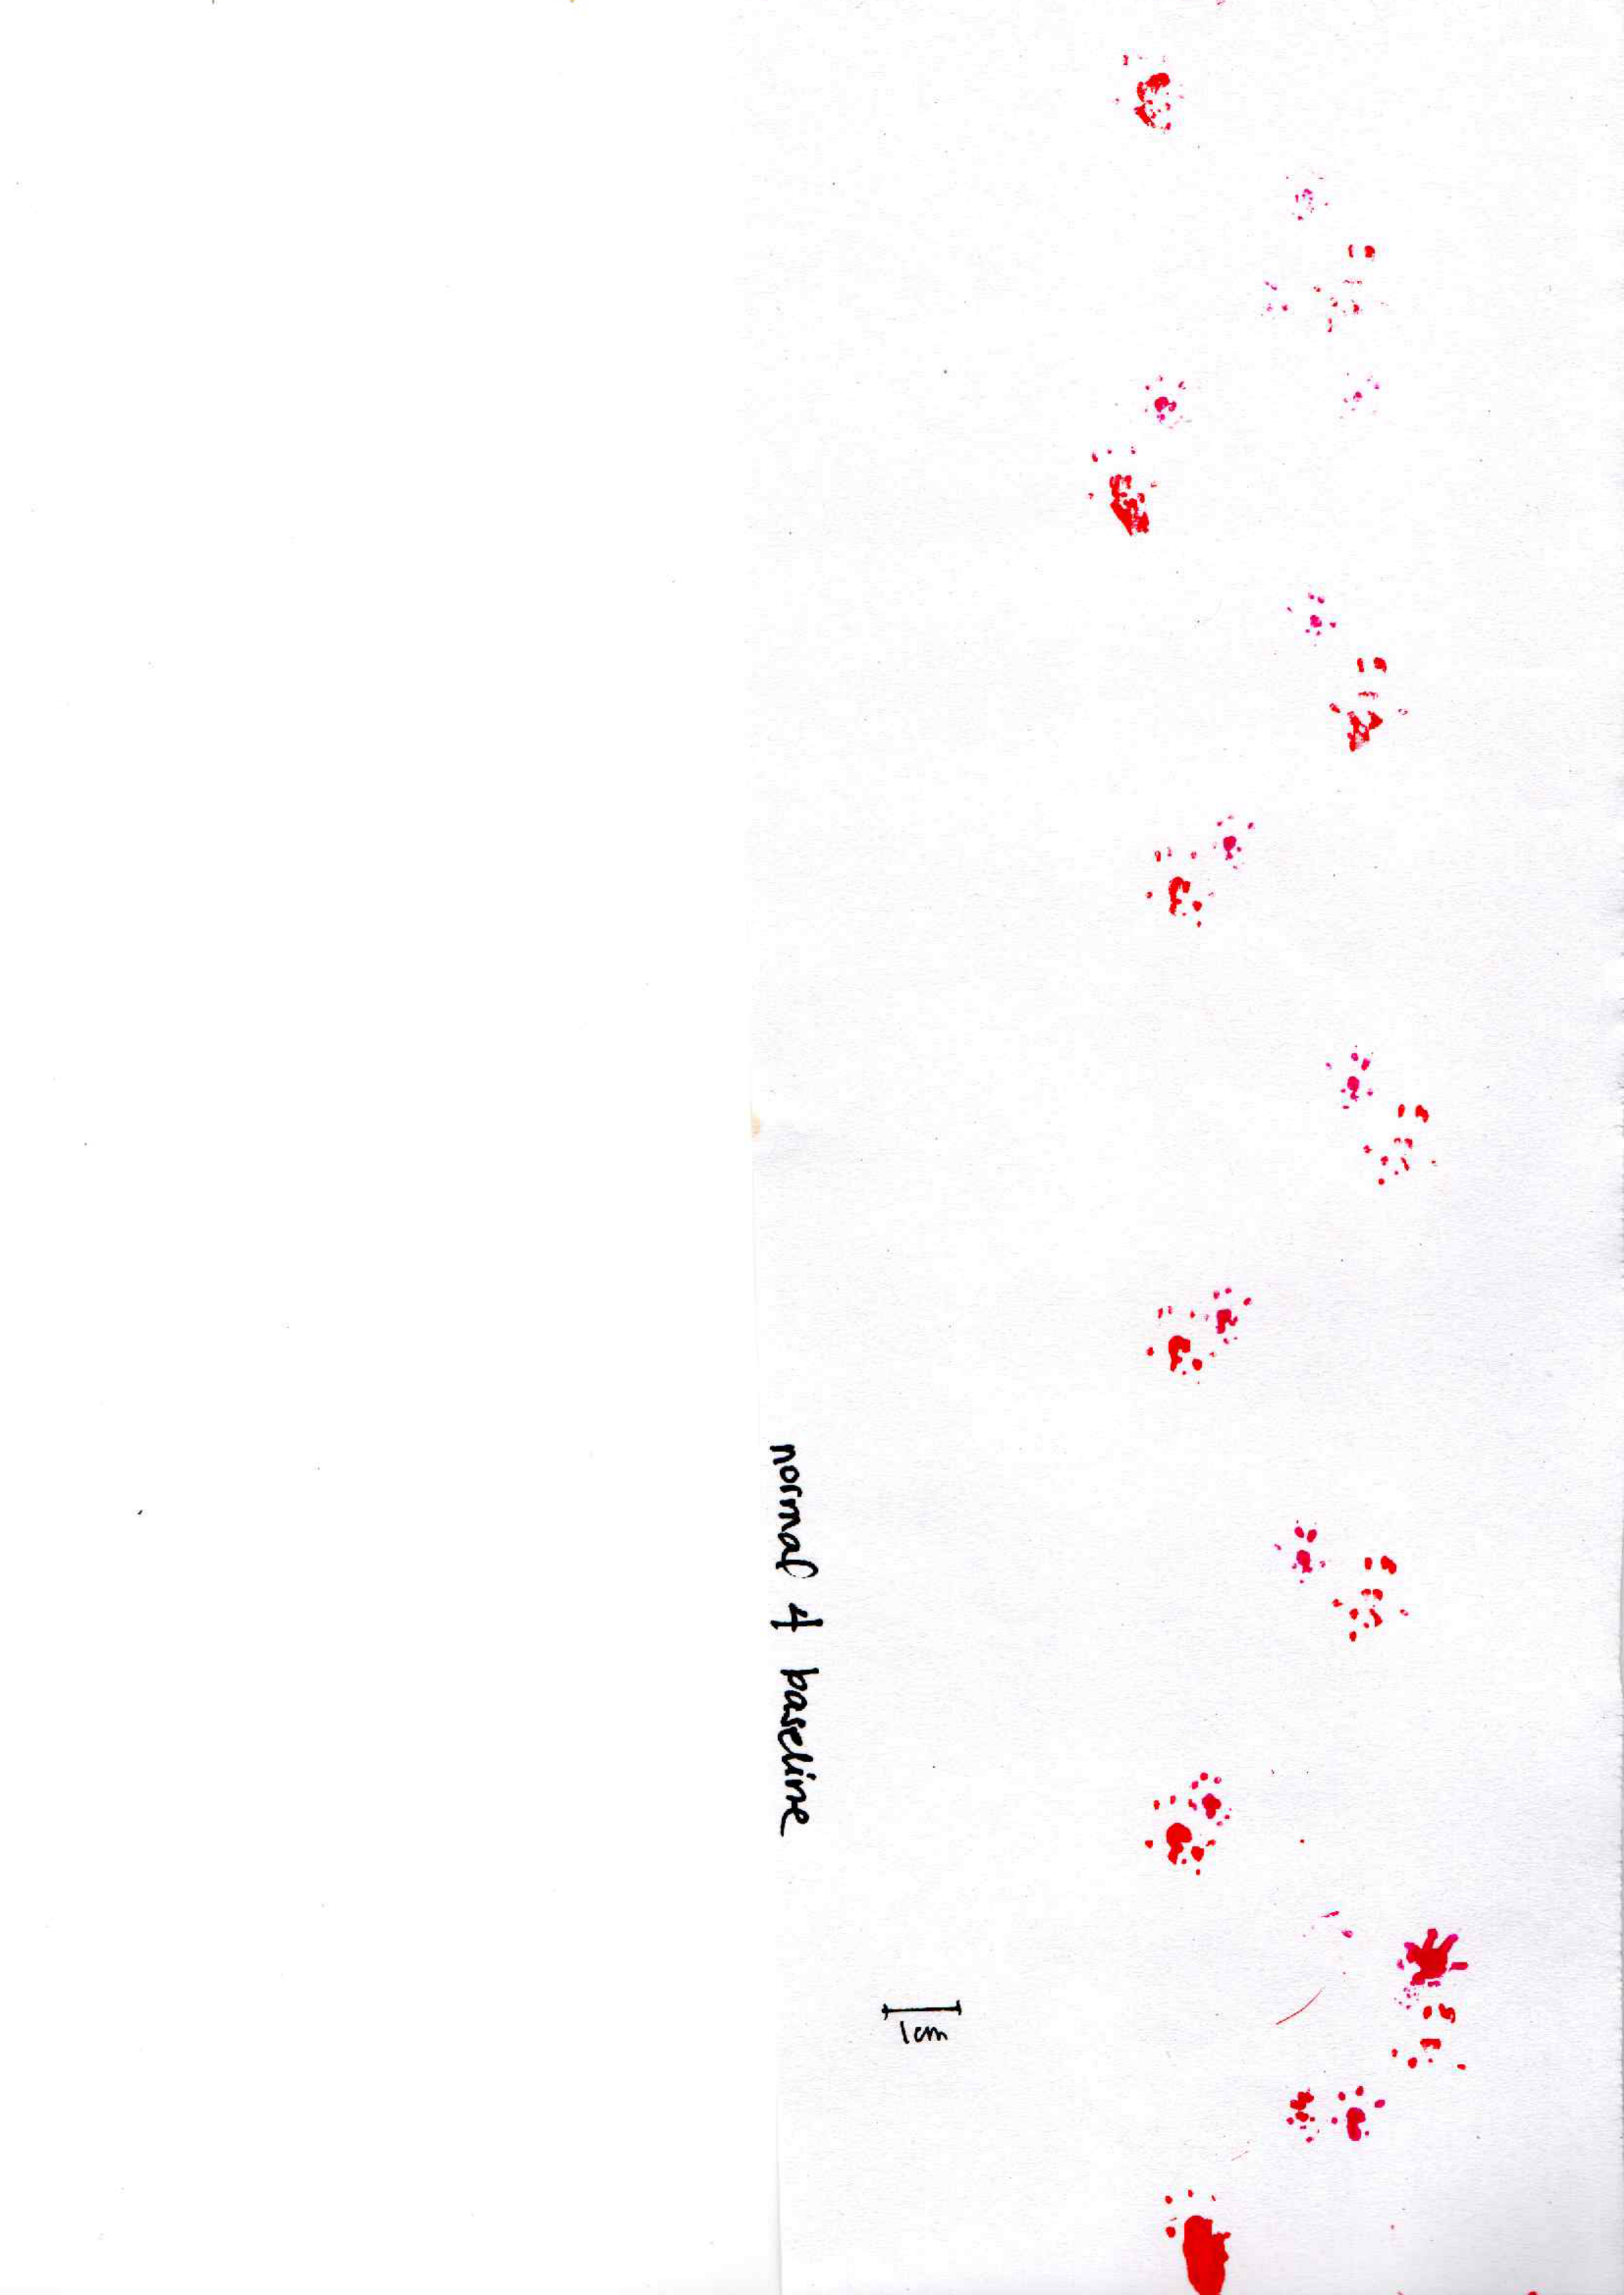 normal 4 baseline
1cm